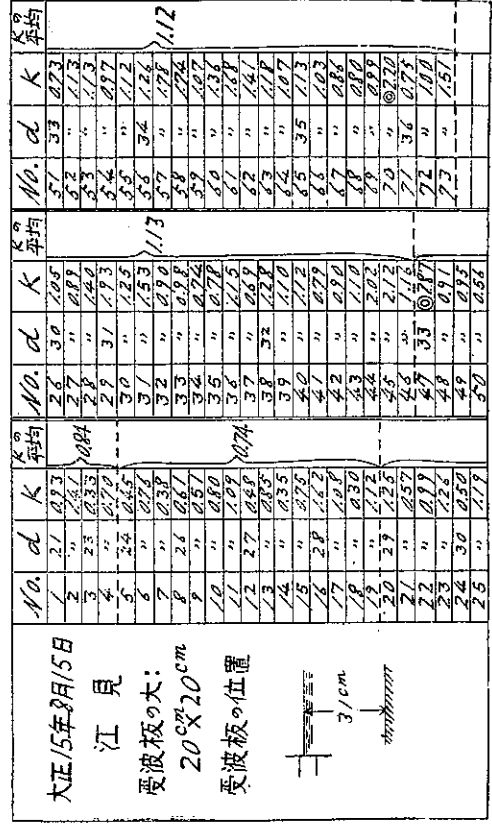 大正15年8月15日
江見
受波板の大:
20cm×20cm
受波板の位置
31cm
No. d K Kの平均
1 21 0.93
2 " 1.41
3 23 0.33
4 " 0.70
0.84
5 24 0.45
6 " 0.76
7 " 0.38
8 26 0.61
9 " 0.51
10 " 0.80
11 " 1.09
12 27 0.48
13 " 0.85
14 " 0.35
15 " 0.75
16 28 1.62
17 " 1.08
18 " 0.30
19 " 1.12
0.74
20 29
21 " 0.57
22 " 0.99
23 " 1.26
24 30 0.50
25 " 1.19
No. d K Kの平均
26 30 1.05
27 " 0.89
28 " 1.40
29 31 1.93
30 " 1.25
31 " 1.53
32 " 0.90
33 " 0.98
34 " 0.74
35 " 0.78
36 " 1.15
37 " 0.69
38 32 1.28
39 " 1.10
40 " 1.12
41 " 0.79
42 " 0.90
43 " 1.10
44 " 2.02
45 " 2.12
46 "
1.13
47 33 ◎1.87
48 " 0.91
49 " 0.95
50 " 0.56
No. d K Kの平均
51 33 0.73
52 " 1.13
53 " 1.13
54 " 0.97
55 " 1.12
56 34 1.26
57 " 1.78
58 " 1.24
59 " 1.07
60 " 1.36
61 " 1.68
62 " 1.41
63 " 1.18
64 " 1.07
65 35 1.13
66 " 1.03
67 " 0.86
68 " 0.80
69 " 0.99
70 " ◎2.20
71 36 0.75
72 " 1.00
73 " 1.51
1.12